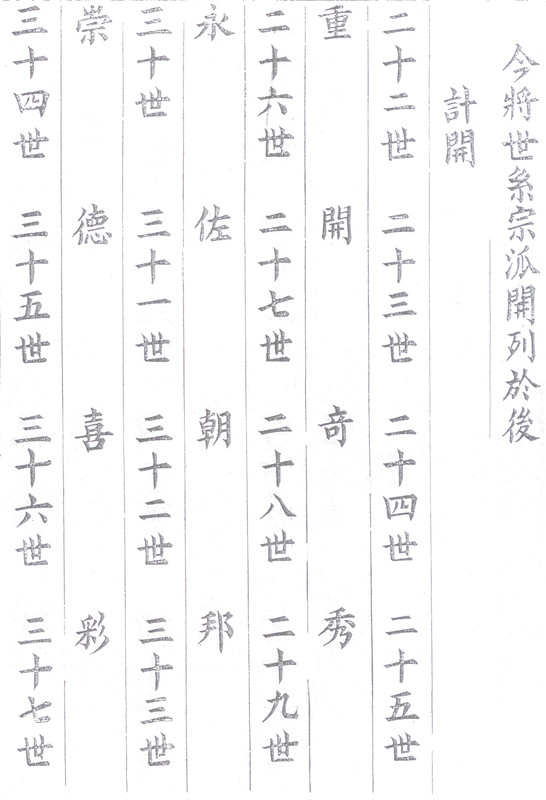 今將世系宗派開列於後
計開
二十二世 二十三世 二十四世 二十五世
重 開 奇 秀
二十六世 二十七世 二十八世 二十九世
永 佐 朝 邦
三十世 三十一世 三十二世 三十三世
崇 德 喜 彩
三十四世 三十五世 三十六世 三十七世